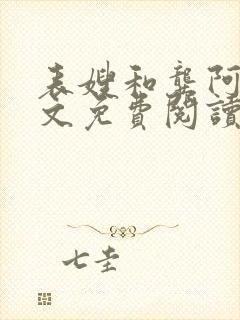 表嫂和龚阿
文免費閱讀
七圭